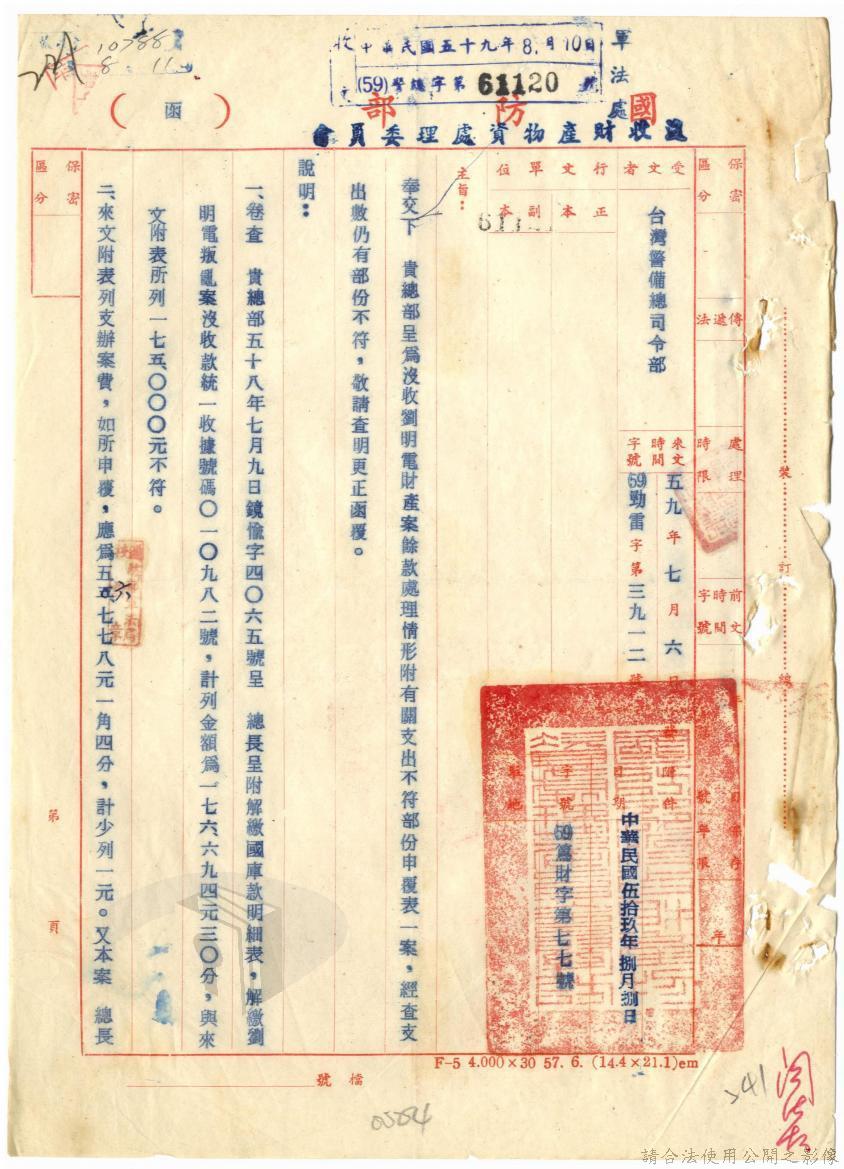 收 中華民國五十九年8.月10日
(59)警總字第61120號
軍法處
10788
8 11
國防部
(函)
沒收財產物資處理委員會
保密區分
傳遞法
處理時限
前文時間字號
受文者
台灣警備總司令部
來文時間字號
五九年七月六日
(59)勁雷字第三九一二號
行文單位
正本
副本
中華民國伍拾玖年捌月捌日
(59)篤財字第七七號
主旨：
奉交下 貴總部呈為沒收劉明電財產案餘款處理情形附有關支出不符部份申覆表一案，經查支
出數仍有部份不符，敬請查明更正函覆。
說明：
一、卷查 貴總部五十八年七月九日鏡愉字四〇六五號呈 總長呈附解繳國庫款明細表，解繳劉
明電叛亂案沒收款統一收據號碼〇一〇九八二號，計列金額為一七六六九四元三〇分，與來
文附表所列一七五、〇〇〇元不符。
二、來文附表列支辦案費，如所申覆，應為五六七七八元一角四分，計少列一元。又本案 總長
保密區分
第 頁
裝 訂 線
F-5 4.000×30 57. 6. (14.4×21.1)em
檔號
341
請合法使用公開之影像